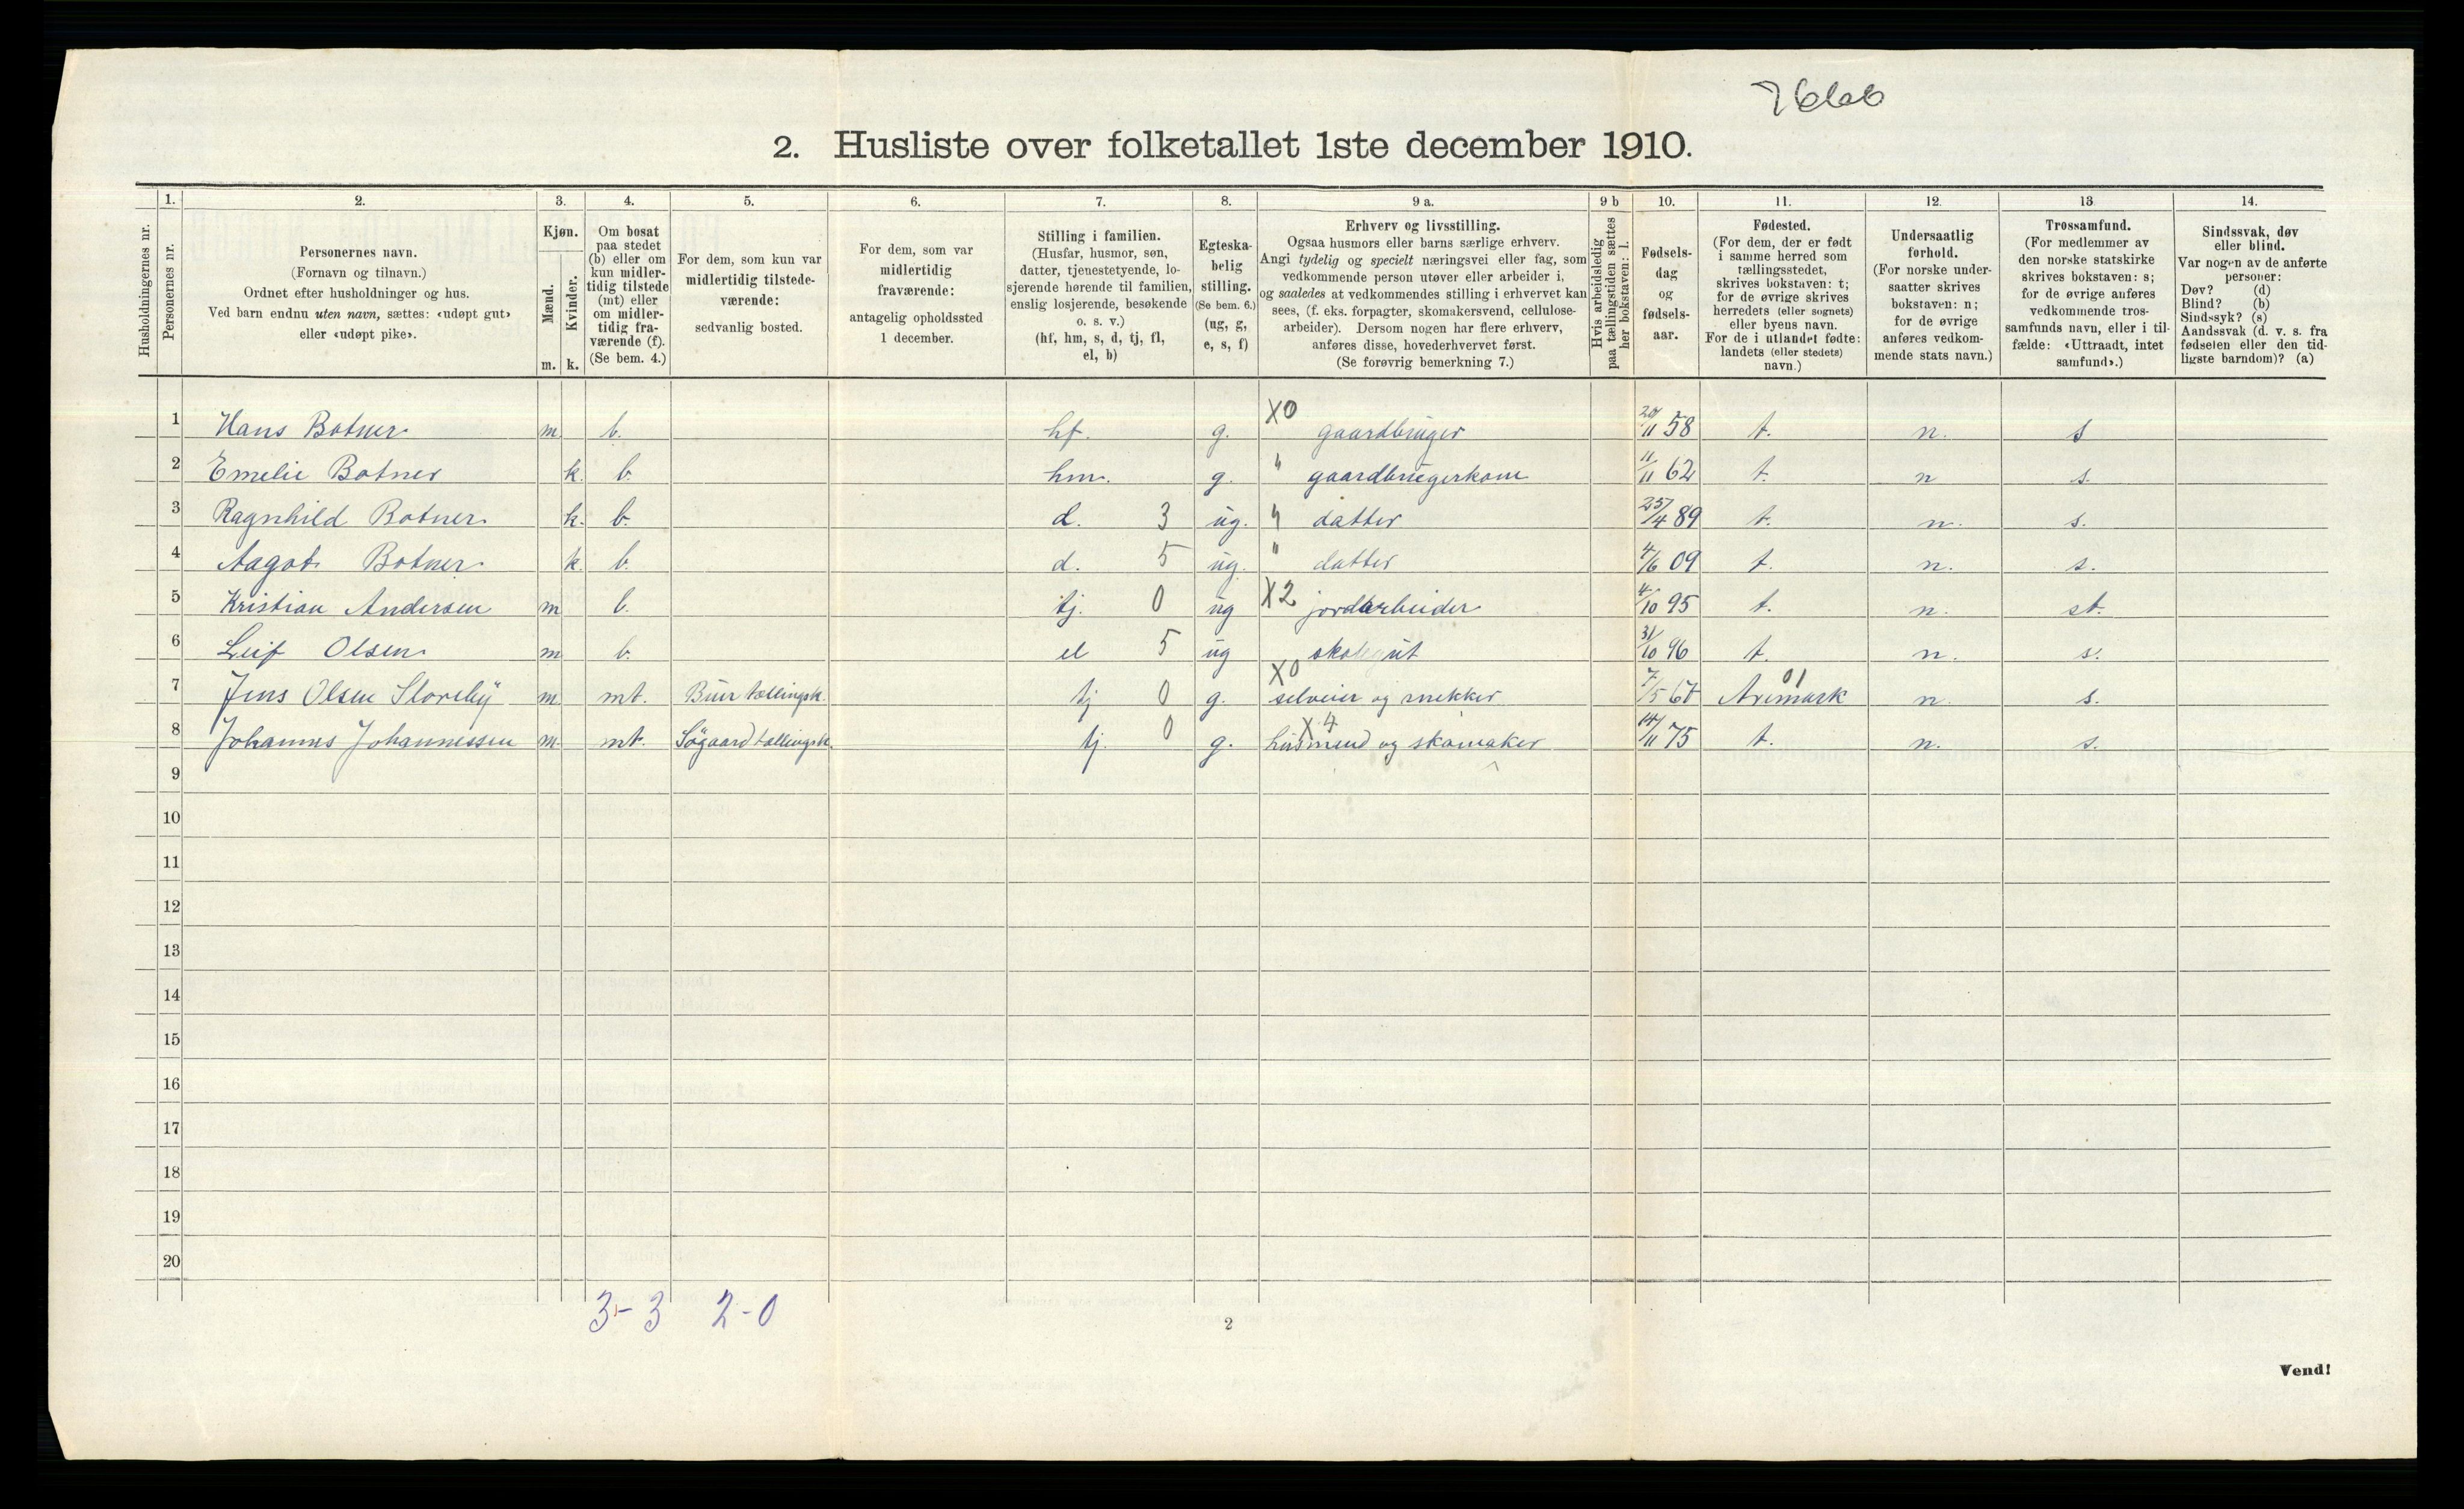 2. Husliste over folketallet 1ste december 1910.
Husholdningernes nr.
1. Personernes nr.
2. Personernes navn. (Fornavn og tilnavn.) Ordnet efter husholdninger og hus. Ved barn endnu uten navn, sættes: «udøpt gut» eller «udøpt pike».
3. Kjøn. Mænd. m. Kvinder. k.
4. Om bosat paa stedet (b) eller om kun midlertidig tilstede (mt) eller om midlertidig fraværende (f). (Se bem. 4.)
5. For dem, som kun var midlertidig tilstedeværende: sedvanlig bosted.
6. For dem, som var midlertidig fraværende: antagelig opholdssted 1 december.
7. Stilling i familien. (Husfar, husmor, søn, datter, tjenestetyende, losjerende hørende til familien, enslig losjerende, besøkende o. s. v.) (hf, hm, s, d, tj, fl, el, b)
8. Egteskabelig stilling. (Se bem. 6.) (ug, g, e, s, f)
9 a. Erhverv og livsstilling. Ogsaa husmors eller barns særlige erhverv. Angi tydelig og specielt næringsvei eller fag, som vedkommende person utøver eller arbeider i, og saaledes at vedkommendes stilling i erhvervet kan sees, (f. eks. forpagter, skomakersvend, cellulosearbeider). Dersom nogen har flere erhverv, anføres disse, hovederhvervet først. (Se forøvrig bemerkning 7.)
9 b Hvis arbeidsledig paa tællingstiden sættes her bokstaven: l.
10. Fødselsdag og fødselsaar.
11. Fødested. (For dem, der er født i samme herred som tællingsstedet, skrives bokstaven: t; for de øvrige skrives herredets (eller sognets) eller byens navn. For de i utlandet fødte: landets (eller stedets) navn.)
12. Undersaatlig forhold. (For norske undersaatter skrives bokstaven: n; for de øvrige anføres vedkommende stats navn.)
13. Trossamfund. (For medlemmer av den norske statskirke skrives bokstaven: s; for de øvrige anføres vedkommende trossamfunds navn, eller i tilfælde: «Uttraadt, intet samfund».)
14. Sindssvak, døv eller blind. Var nogen av de anførte personer: Døv? (d) Blind? (b) Sindssyk? (s) Aandssvak (d. v. s. fra fødselen eller den tidligste barndom)? (a)
1 Hans Botner m. b. hf. g. X0 gaardbruger 20/11 58 t. n. s
2 Emelie Botner k. b. hm. g. " gaardbrugerkone 11/11 62 t. n s.
3 Ragnhild Botner. k. b. d. 3 ug. " datter 25/4 89 t. n. s.
4 Aagot Botner. k. b. d. 5 ug. " datter 4/6 09 t. n. s.
5 Kristian Andersen m b. tj. 0 ug X2 jordarbeider 4/10 95 t. n. st.
6 Leif Olsen. m b. el 5 ug skolegut 31/10 96 t. n. s.
7 Jens Olsen Storeby m. mt. Buer tællingsk. tj 0 g. X0 selveier og snekker 7/5 67 Aremark 01 n. s.
8 Johannes Johannessen m. mt. Søgaard tællingsk. tj. 0 g. X4 husmand og skomaker 14/11 75 t. n. s.
9
10
11
12
13
14
15
16
17
18
19
20
3-3 2-0
2
Vend!